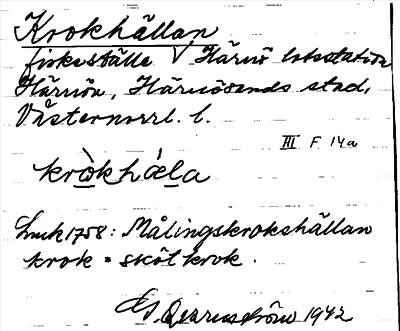 Krokhällan
fiskeställe V Härnö lotsstation
Härnön, Härnösands stad,
Västernorrl. l.
III F 14a
kròkhǽla
Lmh 1758: Målingskrokshällan
krok = skötkrok.
1942